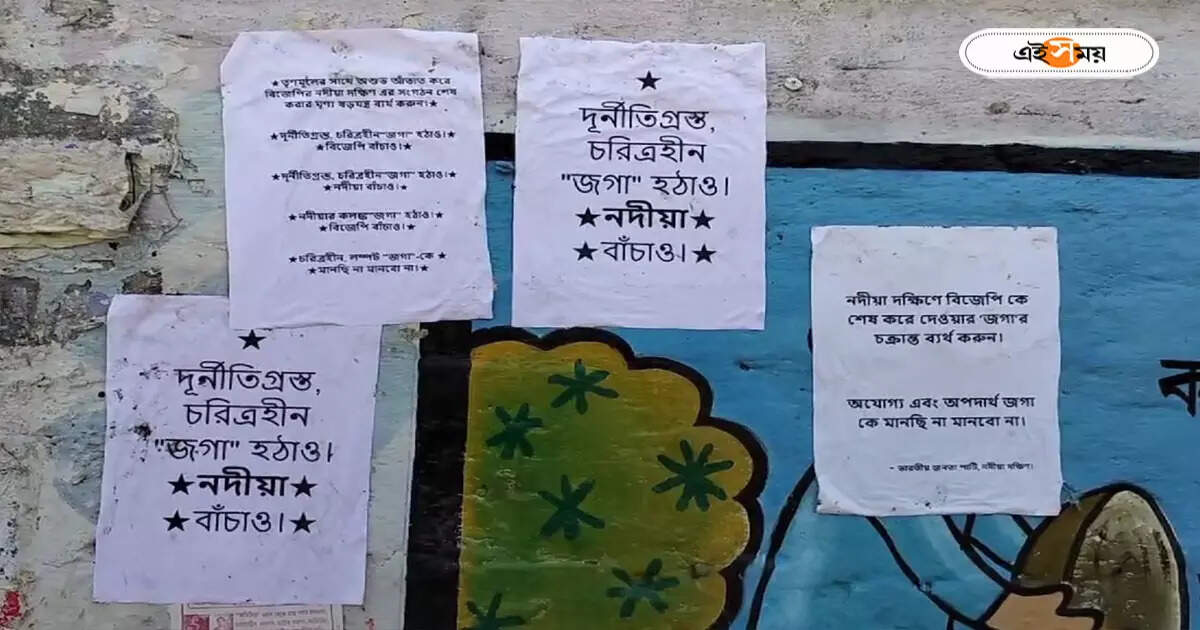 এই সময়
★তৃণমূলের সাথে অশুভ আঁতাত করে
বিজেপির নদীয়া দক্ষিণ এর সংগঠন শেষ
করার ঘৃণ্য ষড়যন্ত্র ব্যর্থ করুন।★
★দূর্নীতিগ্রস্ত, চরিত্রহীন"জগা" হঠাও।★
★বিজেপি বাঁচাও।★
★দূর্নীতিগ্রস্ত, চরিত্রহীন"জগা" হঠাও।★
★নদীয়া বাঁচাও।★
★নদীয়ার কলঙ্ক"জগা" হঠাও।★
★বিজেপি বাঁচাও।★
★চরিত্রহীন, লম্পট "জগা"-কে ★
★মানছি না মানবো না।★
★
দূর্নীতিগ্রস্ত,
চরিত্রহীন
"জগা" হঠাও।
★নদীয়া★
★বাঁচাও।★
নদীয়া দক্ষিণে বিজেপি কে
শেষ করে দেওয়ার 'জগা'র
চক্রান্ত ব্যর্থ করুন।
অযোগ্য এবং অপদার্থ জগা
কে মানছি না মানবো না।
- ভারতীয় জনতা পার্টি, নদীয়া দক্ষিণ।
★
দূর্নীতিগ্রস্ত,
চরিত্রহীন
"জগা" হঠাও।
★নদীয়া★
★বাঁচাও।★